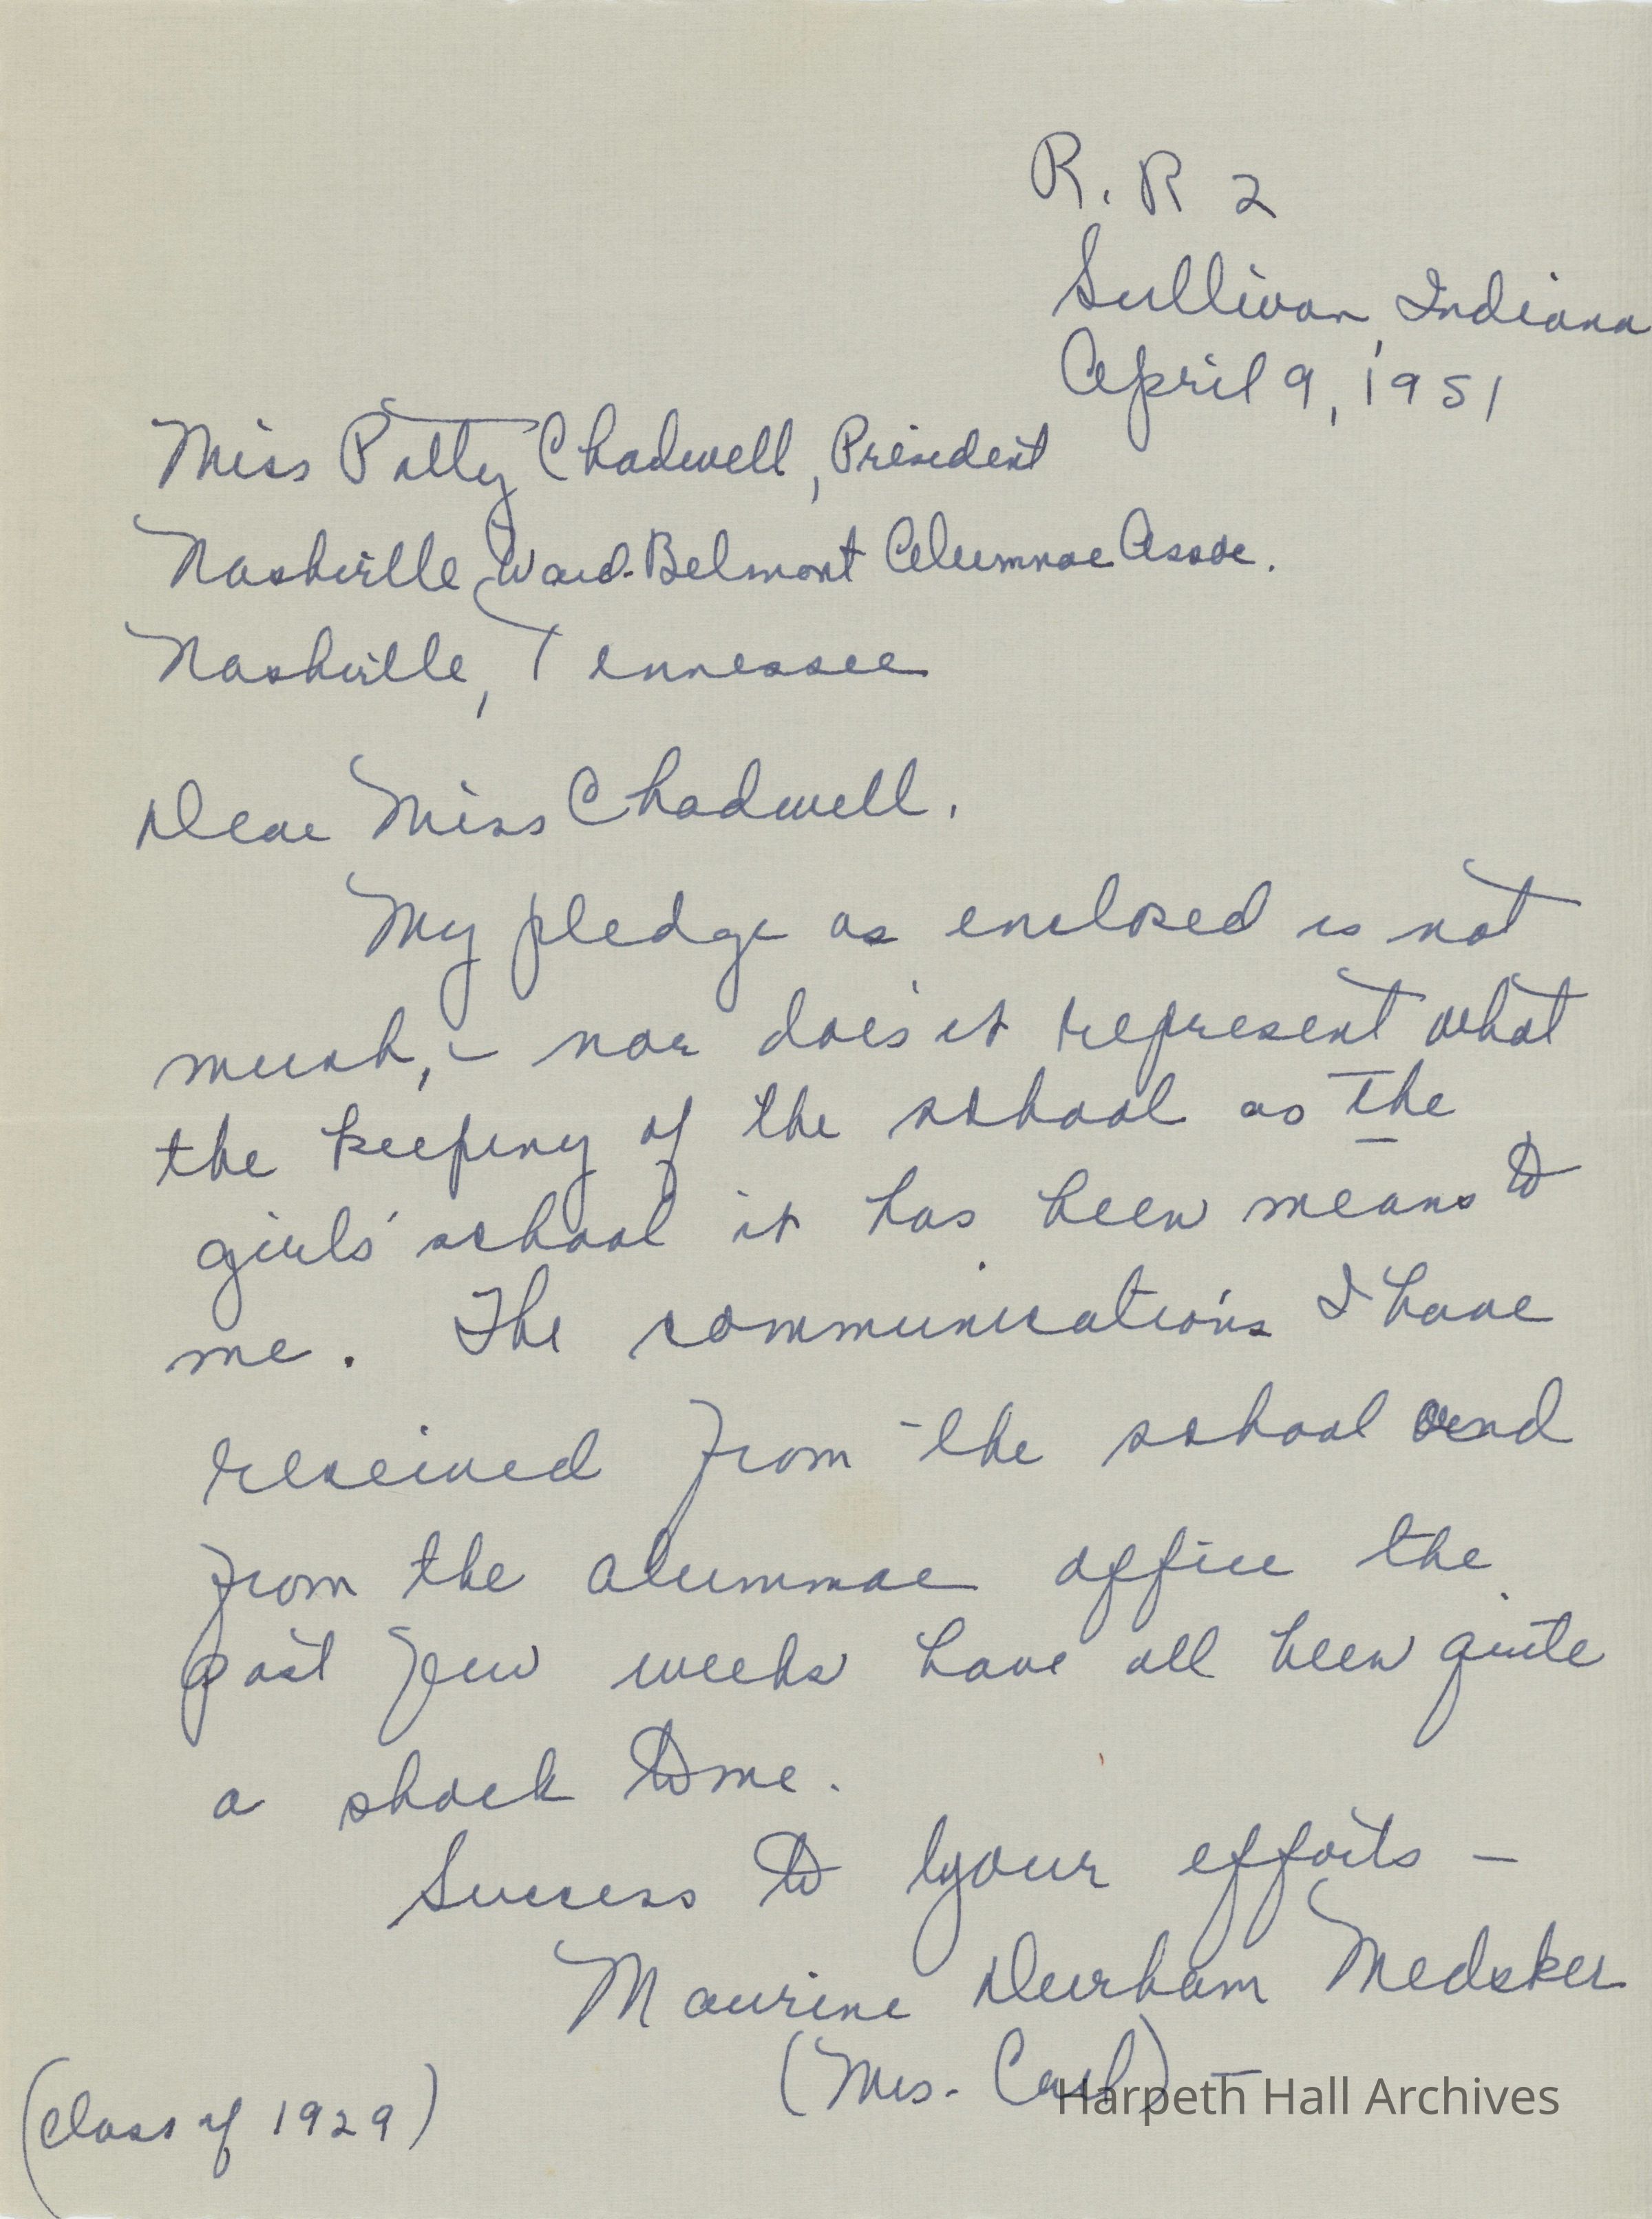 R. R 2
Sullivan, Indiana
April 9, 1951
Miss Patty Chadwell, President
Nashville Ward-Belmont Alumnae Assoc.
Nashville, Tennessee
Dear Miss Chadwell,
My pledge as enclosed is not
much, - nor does it represent what
the keeping of the school as the
girls' school it has been means to
me. The communications I have
received from the school and
from the alumnae office the
past few weeks have all been quite
a shock to me.
Success to your efforts -
Maurine Durham Medsker
(Mrs. Carl) -
(Class of 1929)
Harpeth Hall Archives